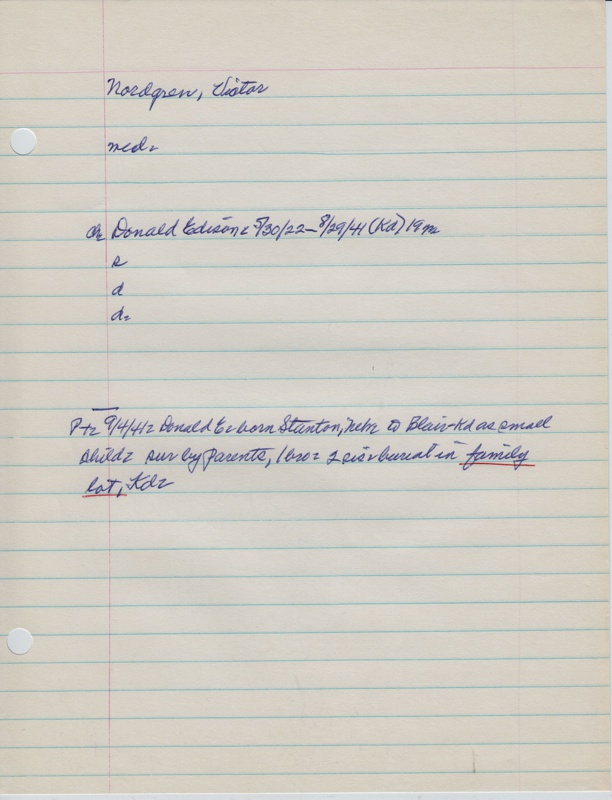 Nordgren, Victor
med.
Ch Donald Edison 5/30/22 - 8/29/41 (Kd) 19m
s
d
d.
9/4/41 Donald E born Stanton, Nebr to Blair-Kd as small
child sur by parents, 1 bro 2 sis burial in family
lot, Kd